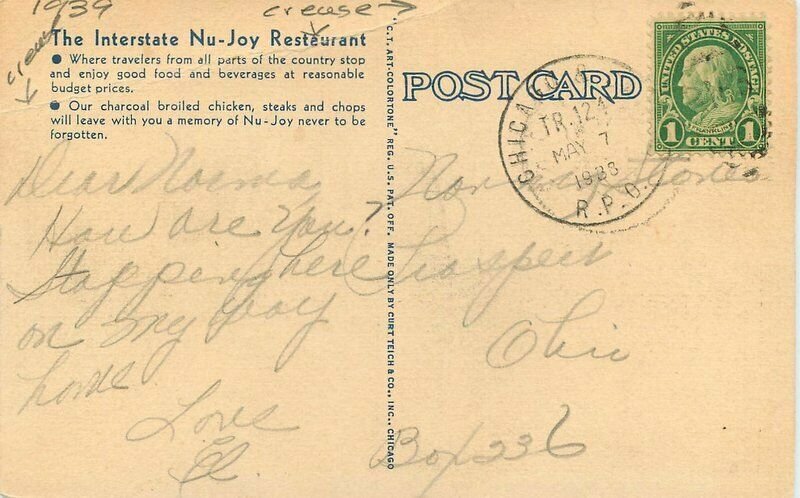 1939
crease →
crease
The Interstate Nu-Joy Restaurant
● Where travelers from all parts of the country stop
and enjoy good food and beverages at reasonable
budget prices.
● Our charcoal broiled chicken, steaks and chops
will leave with you a memory of Nu-Joy never to be
forgotten.
Dear Norma,
How are You?
Stopping here
on my way
home
Love
El.
"C.T. ART-COLORTONE" REG. U.S. PAT. OFF. MADE ONLY BY CURT TEICH & CO., INC., CHICAGO
POST CARD
CHICAGO
TR. 124
MAY 7
1938
R.P.O.
UNITED STATES POSTAGE
FRANKLIN
1 CENT 1
Norma
Prospect
Ohio
Box 236